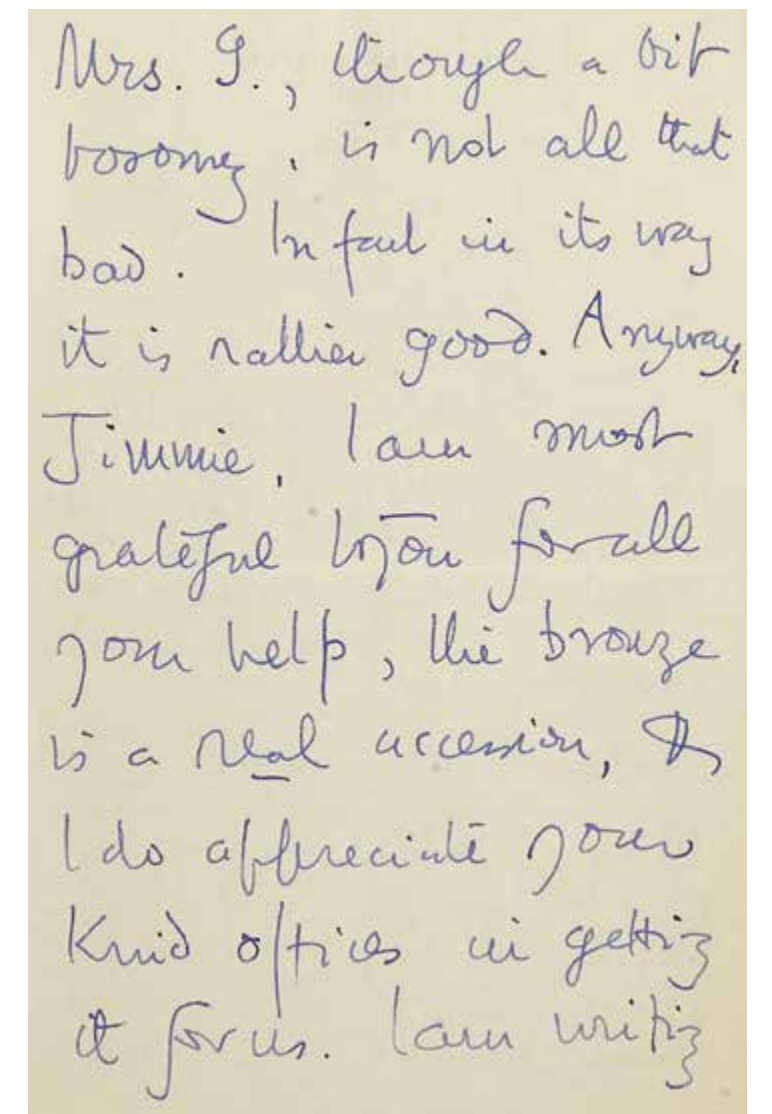 Mrs. G., though a bit
bosomy, is not all that
bad. In fact in its way
it is rather good. Anyway,
Jimmie, I am most
grateful to you for all
your help, the bronze
is a real accession, &
I do appreciate your
kind offices in getting
it for us. I am writing